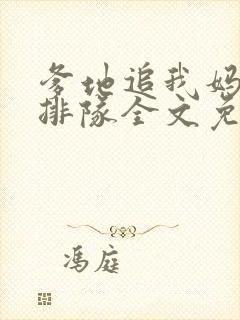 爹地追我妈
排隊全文免
馮庭